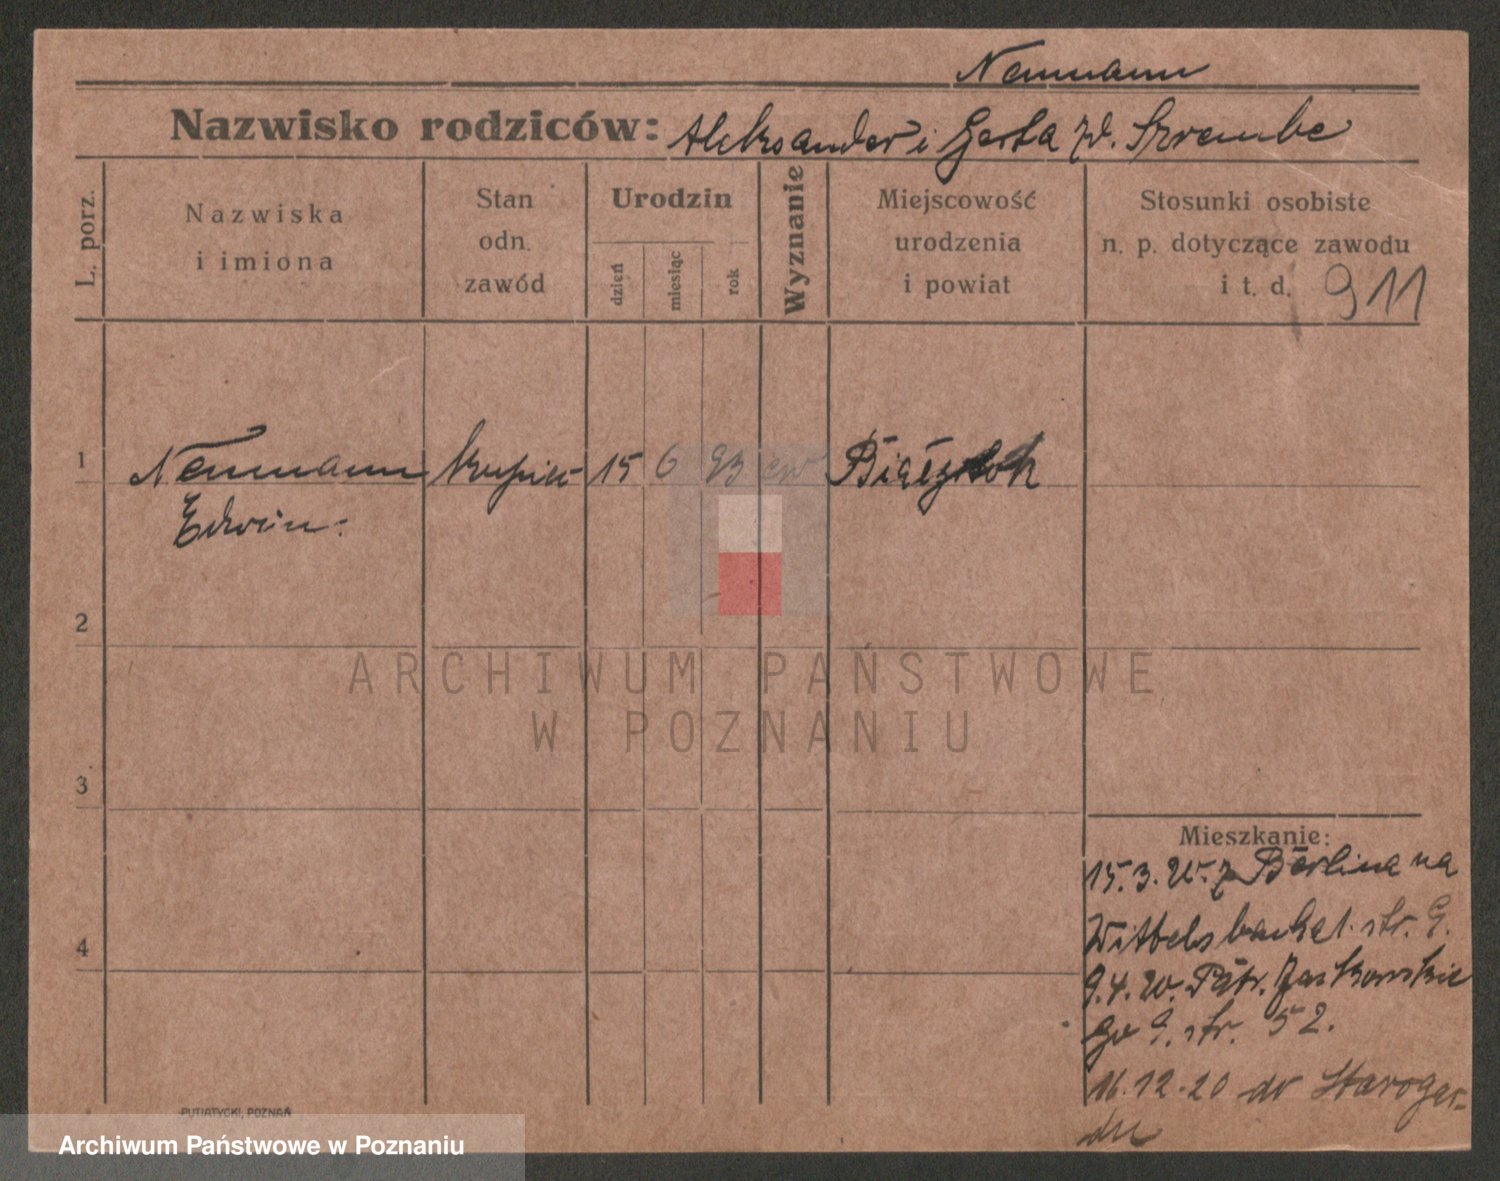 Neumann
Nazwisko rodziców: Aleksander i Gerta zd. Szrembe
L. porz.
Nazwiska
i imiona
Stan
odn.
zawód
Urodzin
dzień
miesiąc
rok
Wyznanie
Miejscowość
urodzenia
i powiat
Stosunki osobiste
n. p. dotyczące zawodu
i t. d. 911
1 Neumann kupiec 15 6 93 ew Białystok
Edwin:
2
3
4
Mieszkanie:
15.3. 20. z Berlina na
Wittelsbacherstr. 9.
9.4.20. Ptr. Jackowskie
go 9. str. 52.
16.12.20 do Staroger-
du
PUTIATYCKI, POZNAŃ
ARCHIWUM PAŃSTWOWE
W POZNANIU
Archiwum Państwowe w Poznaniu